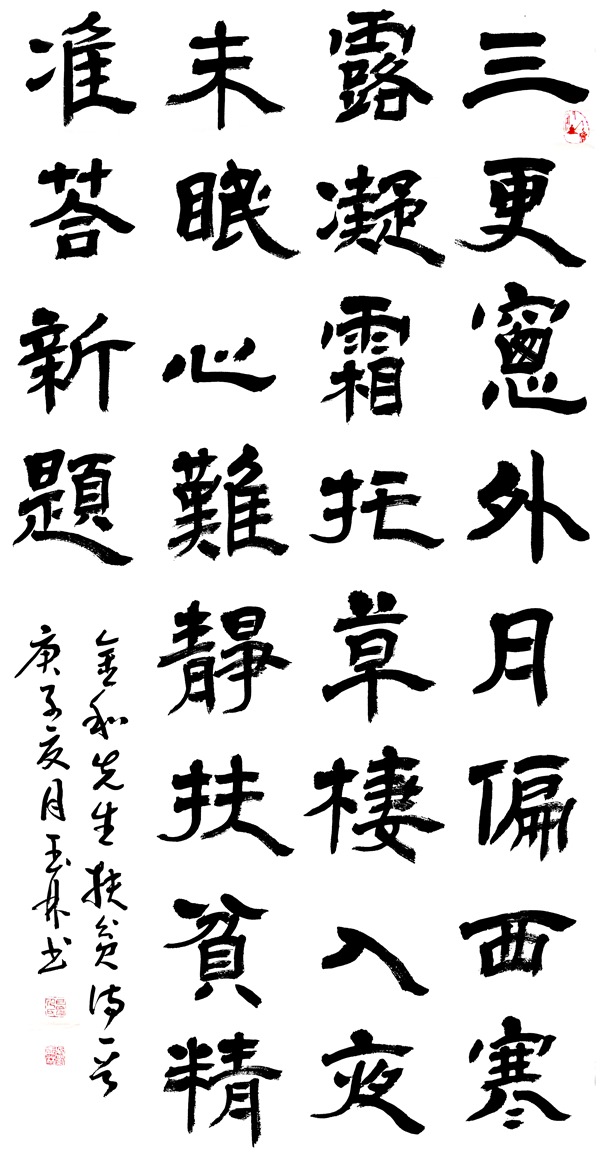 三更窻外月偏西寒
露凝霜托草棲入夜
未眠心難靜扶貧精
准荅新題
金和先生扶貧詩一首
庚子亥月玉林书